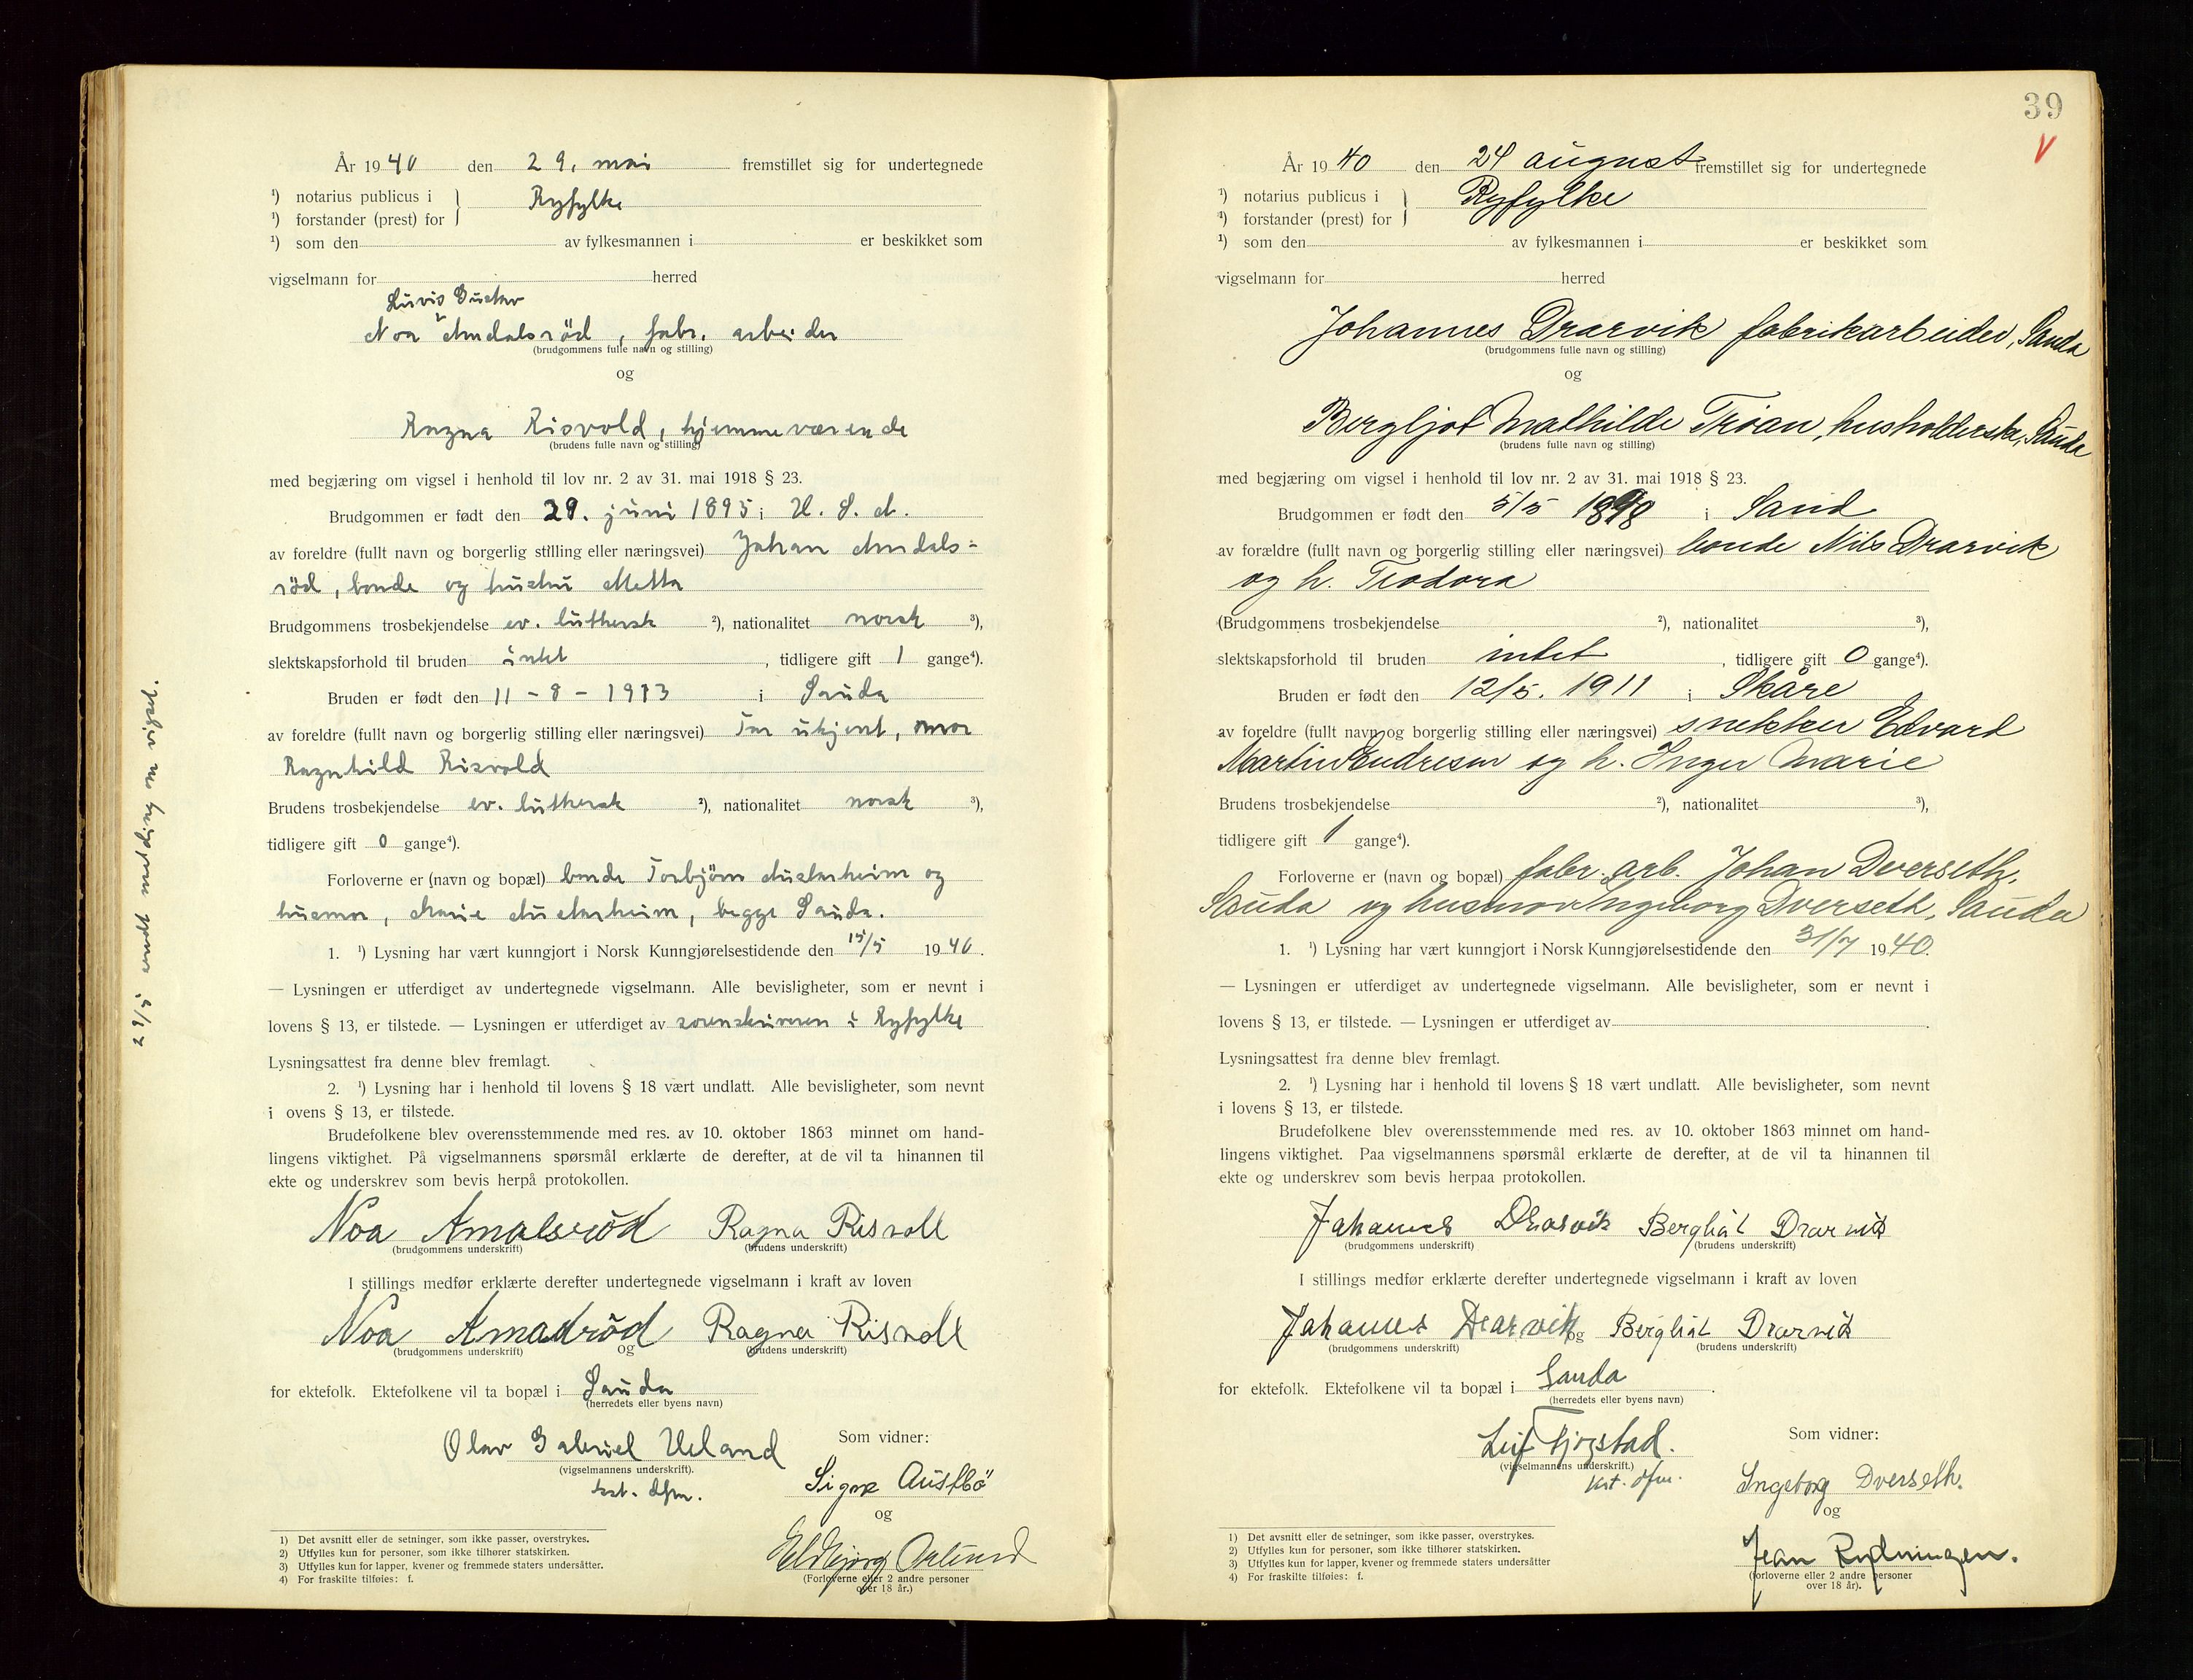 År 1940 den 29. mai fremstillet sig for undertegnede
¹) notarius publicus i } Ryfylke
¹) forstander (prest) for
¹) som den av fylkesmannen i er beskikket som
vigselmann for herred
Luvis Gustav
Noa Amdalsröd, fabr. arbeider
(brudgommens fulle navn og stilling)
og
Ragna Risvold, hjemmeværende
(brudens fulle navn og stilling)
med begjæring om vigsel i henhold til lov nr. 2 av 31. mai 1918 § 23.
Brudgommen er født den 29. juni 1895 i U. S. A.
av foreldre (fullt navn og borgerlig stilling eller næringsvei) Johan Amdals-
röd, bonde og hustru Metta
Brudgommens trosbekjendelse ev. luthersk ²), nationalitet norsk ³),
slektskapsforhold til bruden intet, tidligere gift 1 gange⁴).
Bruden er født den 11-8-1913 i Sauda
av foreldre (fullt navn og borgerlig stilling eller næringsvei) Far ukjent, mor
Ragnhild Risvold
Brudens trosbekjendelse ev. luthersk ²), nationalitet norsk ³),
tidligere gift 0 gange⁴).
Forloverne er (navn og bopæl) bonde Torbjörn Austarheim og
husmor, Marie Austarheim, begge Sauda.
1. ¹) Lysning har vært kunngjort i Norsk Kunngjørelsestidende den 15/5 1940.
— Lysningen er utferdiget av undertegnede vigselmann. Alle bevisligheter, som er nevnt i
lovens § 13, er tilstede. — Lysningen er utferdiget av sorenskriveren i Ryfylke
Lysningsattest fra denne blev fremlagt.
2. ¹) Lysning har i henhold til lovens § 18 vært undlatt. Alle bevisligheter, som nevnt
i ovens § 13, er tilstede.
Brudefolkene blev overensstemmende med res. av 10. oktober 1863 minnet om hand-
lingens viktighet. På vigselmannens spørsmål erklærte de derefter, at de vil ta hinannen til
ekte og underskrev som bevis herpå protokollen.
Noa Amalsröd Ragna Risvoll
(brudgommens underskrift) (brudens underskrift)
I stillings medfør erklærte derefter undertegnede vigselmann i kraft av loven
Noa Amadröd og Ragna Risvoll
(brudgommens underskrift) (brudens underskrift)
for ektefolk. Ektefolkene vil ta bopæl i Sauda
(herredets eller byens navn)
Olav Gabriel Ueland
(vigselmannens underskrift).
kst. dfm.
Som vidner:
Signe Austbö
og
Eldbjørg
(Forloverne eller 2 andre personer
over 18 år.)
1) Det avsnitt eller de setninger, som ikke passer, overstrykes.
2) Utfylles kun for personer, som ikke tilhører statskirken.
3) Utfylles kun for lapper, kvener og fremmede staters undersåtter.
4) For fraskilte tilføies: f.
29/5 sendt melding om vigsel.
39
V
År 1940 den 24 august fremstillet sig for undertegnede
¹) notarius publicus i } Ryfylke
¹) forstander (prest) for
¹) som den av fylkesmannen i er beskikket som
vigselmann for herred
Johannes Drarvik fabrikarbeider, Sauda
(brudgommens fulle navn og stilling)
og
Bergljot Mathilde Troan, husholderska, Sauda
(brudens fulle navn og stilling)
med begjæring om vigsel i henhold til lov nr. 2 av 31. mai 1918 § 23.
Brudgommen er født den 5/5 1898 i Sand
av forældre (fullt navn og borgerlig stilling eller næringsvei) bonde Nils Drarvik
og h. Teodora
(Brudgommens trosbekjendelse ²), nationalitet ³),
slektskapsforhold til bruden intet, tidligere gift 0 gange⁴).
Bruden er født den 12/5. 1911 i Skåre
av foreldre (fullt navn og borgerlig stilling eller næringsvei) snekker Edvard
Martin Endresen og h. Inger Marie
Brudens trosbekjendelse ²), nationalitet ³),
tidligere gift 1 gange⁴).
Forloverne er (navn og bopæl) fabr. arb. Johan Dverseth,
Sauda og husmor Ingeborg Dverseth, Sauda
1. ¹) Lysning har vært kunngjort i Norsk Kunngjørelsestidende den 31/7 1940.
— Lysningen er utferdiget av undertegnede vigselmann. Alle bevisligheter, som er nevnt i
lovens § 13, er tilstede. — Lysningen er utferdiget av .
Lysningsattest fra denne blev fremlagt.
2. ¹) Lysning har i henhold til lovens § 18 vært undlatt. Alle bevisligheter, som nevnt
i lovens § 13, er tilstede.
Brudefolkene blev overensstemmende med res. av 10. oktober 1863 minnet om hand-
lingens viktighet. Paa vigselmannens spørsmål erklærte de derefter, at de vil ta hinannen til
ekte og underskrev som bevis herpaa protokollen.
Johannes Drarvik Bergliot Drarvik
(brudgommens underskrift) (brudens underskrift)
I stillings medfør erklærte derefter undertegnede vigselmann i kraft av loven
Johannes Drarvik og Bergliot Drarvik
(brudgommens underskrift) (brudens underskrift)
for ektefolk. Ektefolkene vil ta bopæl i Sauda.
(herredets eller byens navn)
Leif Tjogstad.
(vigselmannens underskrift.)
kst. dfm.
Som vidner:
Ingeborg Dverseth.
og
Jean Rydningen.
(forloverne eller 2 andre personer
over 18 år).
1) Det avsnitt eller de setninger, som ikke passer, overstrykes.
2) Utfylles kun for personer, som ikke tilhører statskirken.
3) Utfylles kun for lapper, kvener og fremmede staters undersåtter
4) For fraskilte tilføies: f.